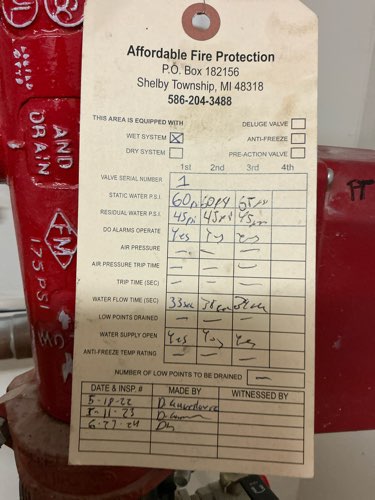 Affordable Fire Protection
P.O. Box 182156
Shelby Township, MI 48318
586-204-3488
THIS AREA IS EQUIPPED WITH DELUGE VALVE
WET SYSTEM X ANTI-FREEZE
DRY SYSTEM PRE-ACTION VALVE
1st 2nd 3rd 4th
VALVE SERIAL NUMBER 1
STATIC WATER P.S.I. 60psi 60psi 65psi
RESIDUAL WATER P.S.I. 45psi 45psi 45psi
DO ALARMS OPERATE Yes Yes Yes
AIR PRESSURE — — —
AIR PRESSURE TRIP TIME — — —
TRIP TIME (SEC) — — —
WATER FLOW TIME (SEC) 33sec
LOW POINTS DRAINED — — —
WATER SUPPLY OPEN Yes Yes Yes
ANTI-FREEZE TEMP RATING — — —
NUMBER OF LOW POINTS TO BE DRAINED —
DATE & INSP. # MADE BY WITNESSED BY
5-18-22
5-11-23
6-27-24
AND
DRAIN
FM
175 PSI